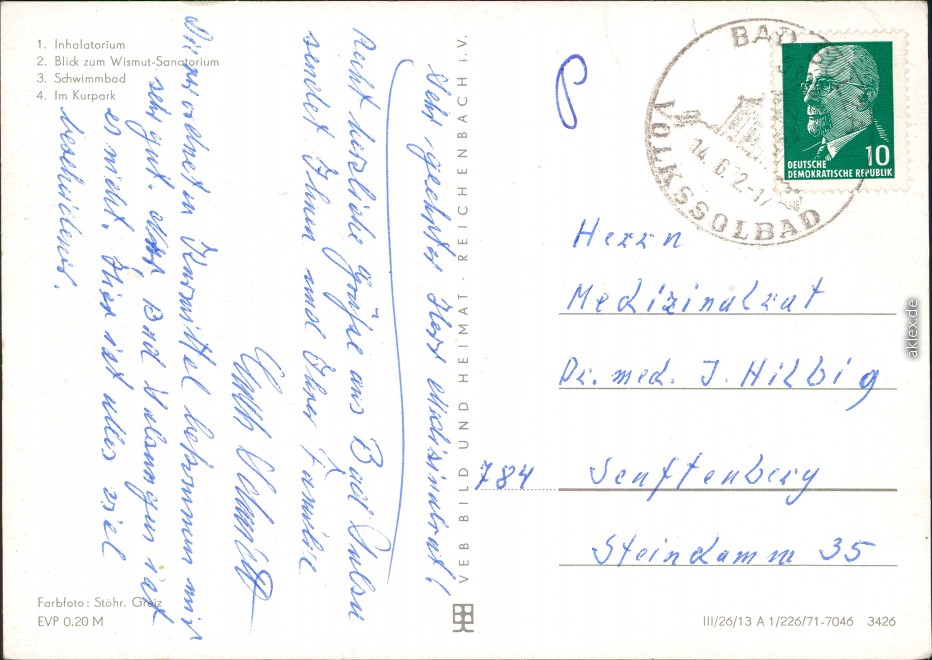 1. Inhalatorium
2. Blick zum Wismut-Sanatorium
3. Schwimmbad
4. Im Kurpark
Sehr geehrter Herr Medizinalrat!
Recht herzliche Grüße aus Bad Sulza
sendet Ihnen und Ihrer Familie
Die verordneten Kurmittel bekommen mir
sehr gut. Bad Salzungen ist
es nicht. Hier ist alles viel
bescheidener.
Farbfoto: Stöhr. Greiz
EVP 0,20 M
VEB BILD UND HEIMAT · REICHENBACH i. V.
BAD
14.6.72.-17
VOLKSSOLBAD
DEUTSCHE
DEMOKRATISCHE REPUBLIK
10
Herrn
Medizinalrat
Dr. med. J. Hilbig
784 Senftenberg
Steindamm 35
III/26/13 A 1/226/71-7046 3426
aklex.de